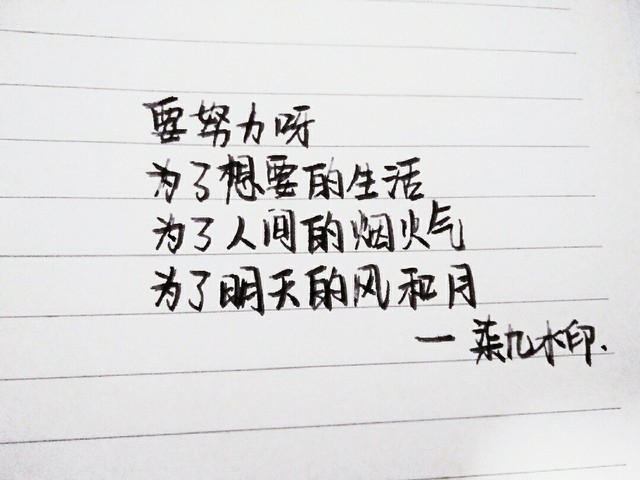 要努力呀
为了想要的生活
为了人间的烟火气
为了明天的风和月
一柒九水印.